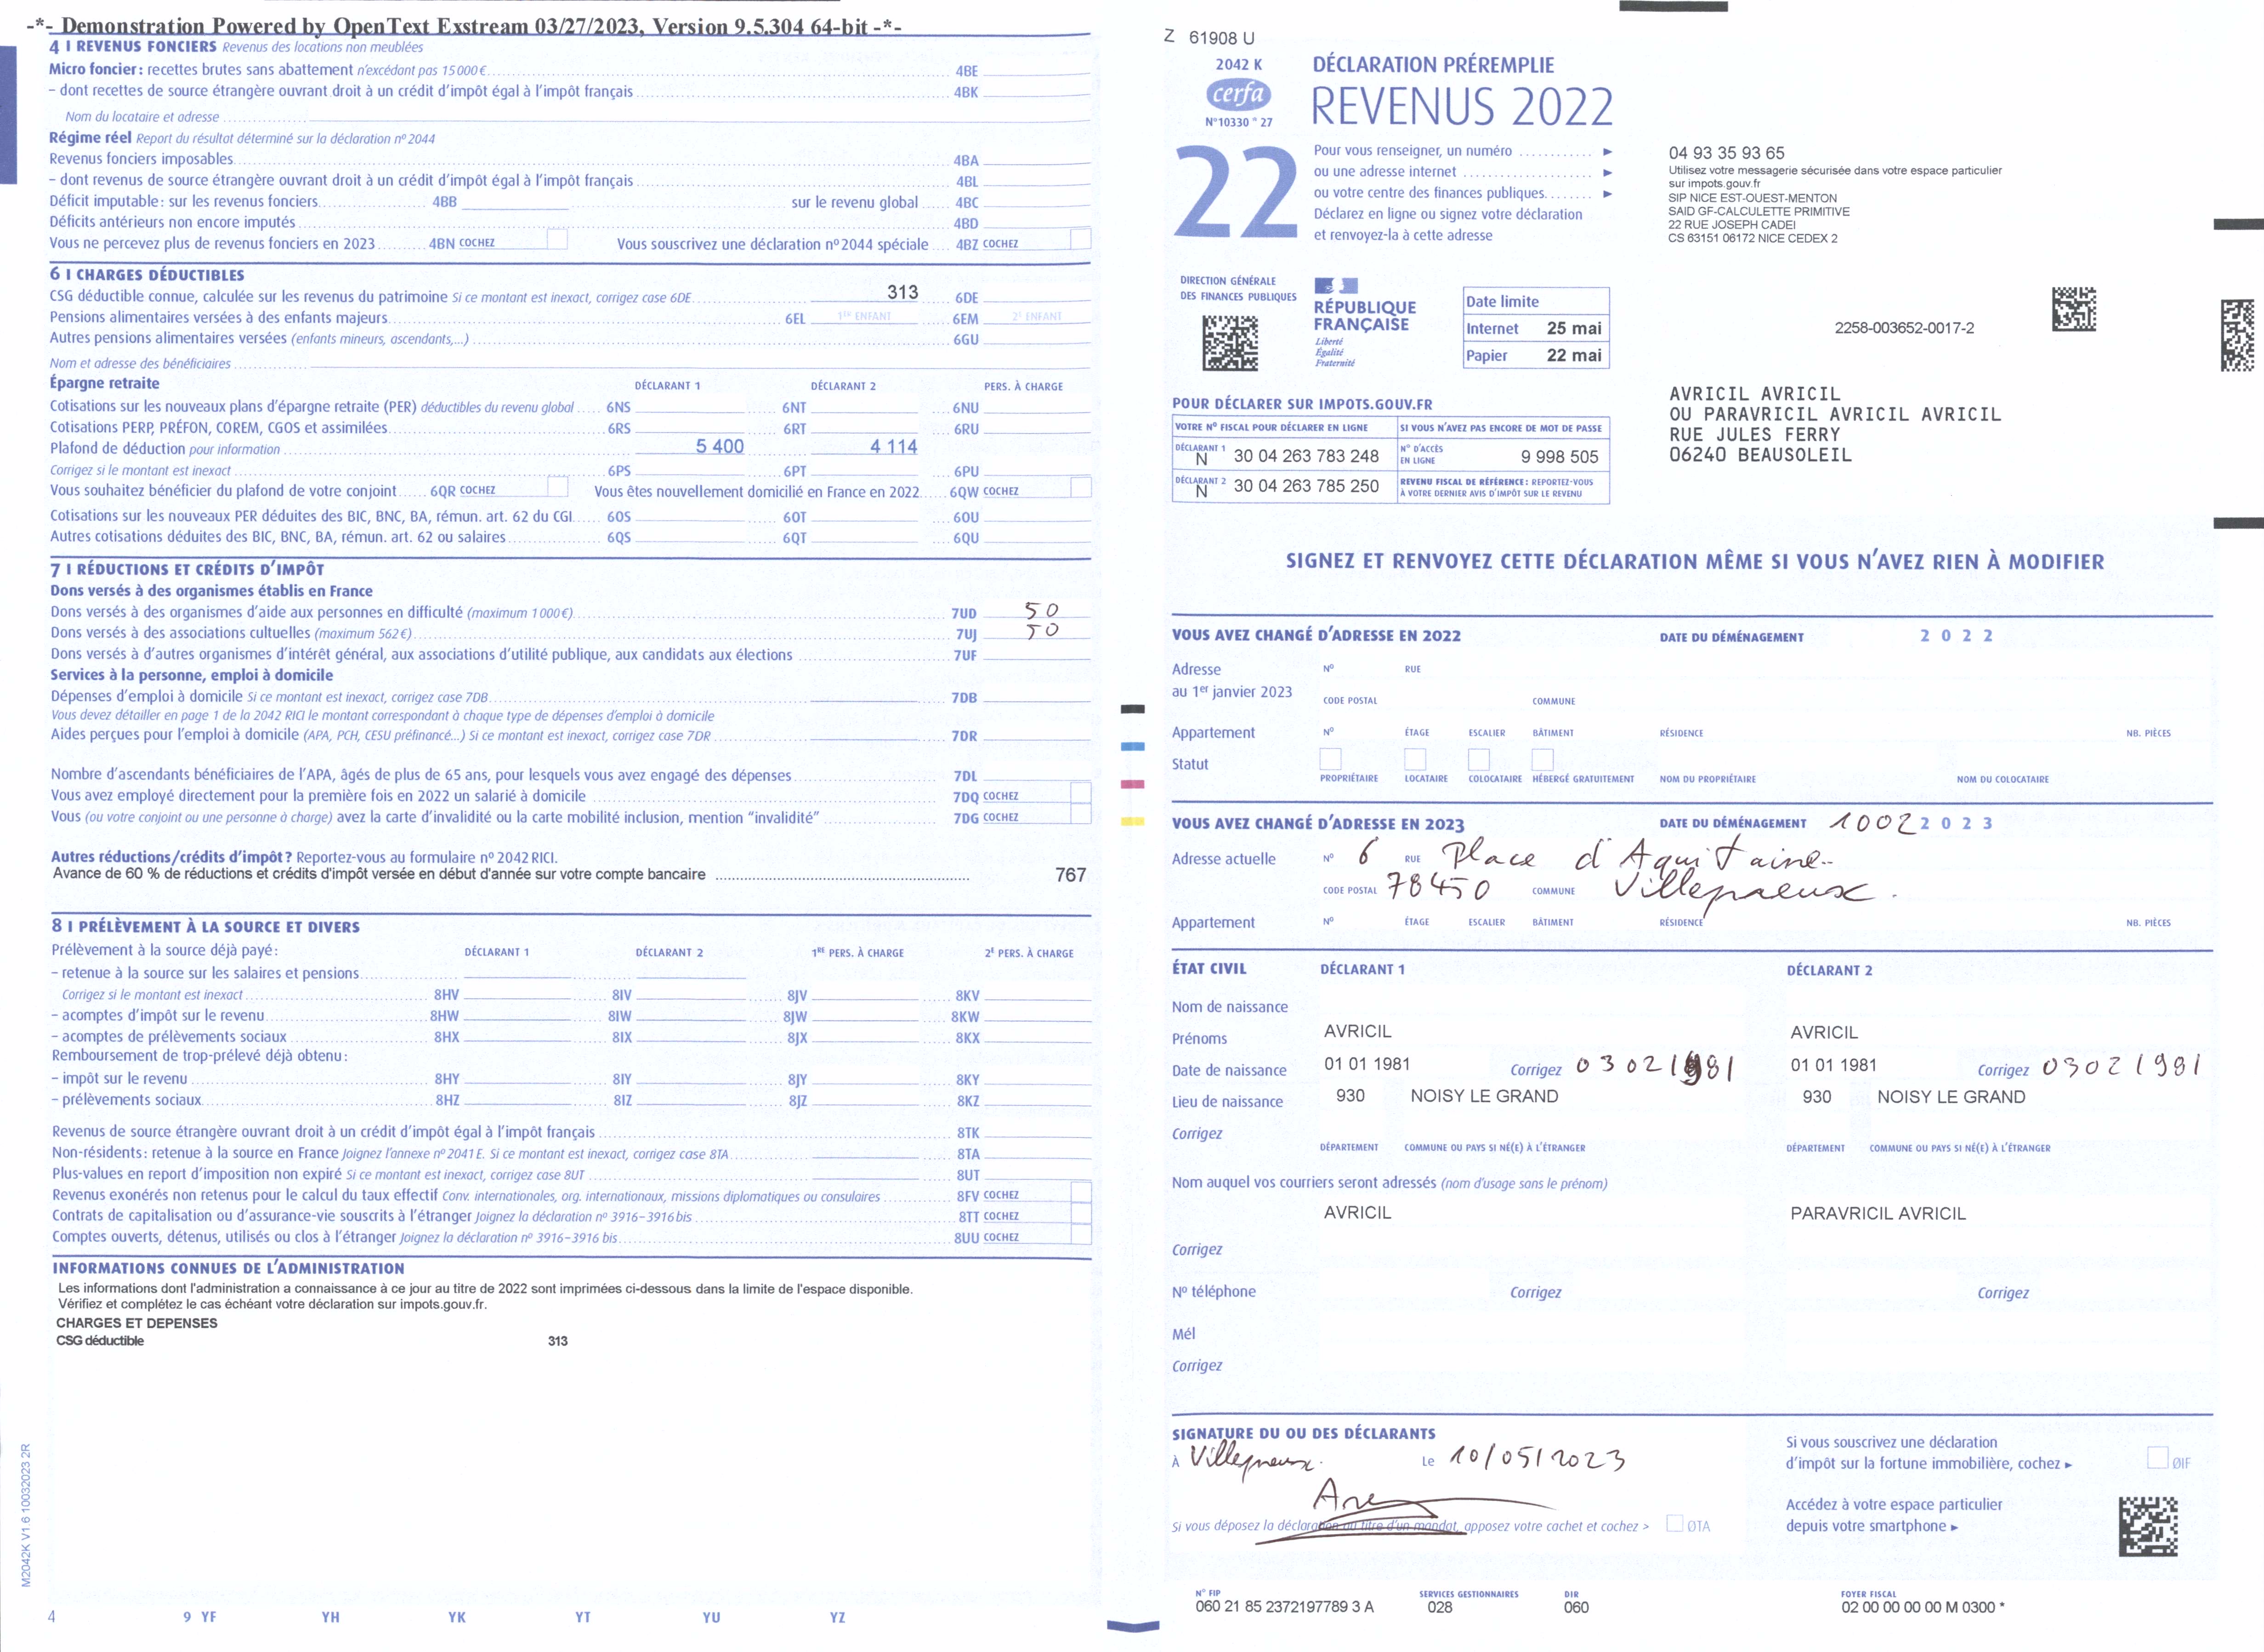 -*- Demonstration Powered by OpenText Exstream 03/27/2023, Version 9.5.304 64-bit -*-
4 I REVENUS FONCIERS Revenus des locations non meublées
Micro foncier : recettes brutes sans abattement n'excédant pas 15 000 € 4BE
– dont recettes de source étrangère ouvrant droit à un crédit d'impôt égal à l'impôt français 4BK
Nom du locataire et adresse
Régime réel Report du résultat déterminé sur la déclaration nº 2044
Revenus fonciers imposables 4BA
– dont revenus de source étrangère ouvrant droit à un crédit d'impôt égal à l'impôt français 4BL
Déficit imputable : sur les revenus fonciers 4BB sur le revenu global 4BC
Déficits antérieurs non encore imputés 4BD
Vous ne percevez plus de revenus fonciers en 2023 4BN COCHEZ Vous souscrivez une déclaration nº 2044 spéciale 4BZ COCHEZ
6 I CHARGES DÉDUCTIBLES
CSG déductible connue, calculée sur les revenus du patrimoine Si ce montant est inexact, corrigez case 6DE 313 6DE
Pensions alimentaires versées à des enfants majeurs 6EL 1ER ENFANT 6EM 2E ENFANT
Autres pensions alimentaires versées (enfants mineurs, ascendants,...) 6GU
Nom et adresse des bénéficiaires
Épargne retraite DÉCLARANT 1 DÉCLARANT 2 PERS. À CHARGE
Cotisations sur les nouveaux plans d'épargne retraite (PER) déductibles du revenu global 6NS 6NT 6NU
Cotisations PERP, PRÉFON, COREM, CGOS et assimilées 6RS 6RT 6RU
Plafond de déduction pour information 5 400 4 114
Corrigez si le montant est inexact 6PS 6PT 6PU
Vous souhaitez bénéficier du plafond de votre conjoint 6QR COCHEZ Vous êtes nouvellement domicilié en France en 2022 6QW COCHEZ
Cotisations sur les nouveaux PER déduites des BIC, BNC, BA, rémun. art. 62 du CGI 6OS 6OT 6OU
Autres cotisations déduites des BIC, BNC, BA, rémun. art. 62 ou salaires 6QS 6QT 6QU
7 I RÉDUCTIONS ET CRÉDITS D'IMPÔT
Dons versés à des organismes établis en France
Dons versés à des organismes d'aide aux personnes en difficulté (maximum 1 000 €) 7UD 50
Dons versés à des associations cultuelles (maximum 562 €) 7UJ 50
Dons versés à d'autres organismes d'intérêt général, aux associations d'utilité publique, aux candidats aux élections 7UF
Services à la personne, emploi à domicile
Dépenses d'emploi à domicile Si ce montant est inexact, corrigez case 7DB 7DB
Vous devez détailler en page 1 de la 2042 RICI le montant correspondant à chaque type de dépenses d'emploi à domicile
Aides perçues pour l'emploi à domicile (APA, PCH, CESU préfinancé...) Si ce montant est inexact, corrigez case 7DR 7DR
Nombre d'ascendants bénéficiaires de l'APA, âgés de plus de 65 ans, pour lesquels vous avez engagé des dépenses 7DL
Vous avez employé directement pour la première fois en 2022 un salarié à domicile 7DQ COCHEZ
Vous (ou votre conjoint ou une personne à charge) avez la carte d'invalidité ou la carte mobilité inclusion, mention "invalidité" 7DG COCHEZ
Autres réductions/crédits d'impôt ? Reportez-vous au formulaire nº 2042 RICI.
Avance de 60 % de réductions et crédits d'impôt versée en début d'année sur votre compte bancaire 767
8 I PRÉLÈVEMENT À LA SOURCE ET DIVERS
Prélèvement à la source déjà payé : DÉCLARANT 1 DÉCLARANT 2 1RE PERS. À CHARGE 2E PERS. À CHARGE
– retenue à la source sur les salaires et pensions
Corrigez si le montant est inexact 8HV 8IV 8JV 8KV
– acomptes d'impôt sur le revenu 8HW 8IW 8JW 8KW
– acomptes de prélèvements sociaux 8HX 8IX 8JX 8KX
Remboursement de trop-prélevé déjà obtenu :
– impôt sur le revenu 8HY 8IY 8JY 8KY
– prélèvements sociaux 8HZ 8IZ 8JZ 8KZ
Revenus de source étrangère ouvrant droit à un crédit d'impôt égal à l'impôt français 8TK
Non-résidents : retenue à la source en France Joignez l'annexe nº 2041 E. Si ce montant est inexact, corrigez case 8TA 8TA
Plus-values en report d'imposition non expiré Si ce montant est inexact, corrigez case 8UT 8UT
Revenus exonérés non retenus pour le calcul du taux effectif Conv. internationales, org. internationaux, missions diplomatiques ou consulaires 8FV COCHEZ
Contrats de capitalisation ou d'assurance-vie souscrits à l'étranger Joignez la déclaration nº 3916–3916 bis 8TT COCHEZ
Comptes ouverts, détenus, utilisés ou clos à l'étranger Joignez la déclaration nº 3916–3916 bis 8UU COCHEZ
INFORMATIONS CONNUES DE L'ADMINISTRATION
Les informations dont l'administration a connaissance à ce jour au titre de 2022 sont imprimées ci-dessous dans la limite de l'espace disponible.
Vérifiez et complétez le cas échéant votre déclaration sur impots.gouv.fr.
CHARGES ET DEPENSES
CSG déductible 313
M2042K V1 6 10032023 2R
4 9 YF YH YK YT YU YZ
Z 61908 U
2042 K
cerfa
N°10330 * 27
DÉCLARATION PRÉREMPLIE
REVENUS 2022
22
Pour vous renseigner, un numéro
ou une adresse internet
ou votre centre des finances publiques
Déclarez en ligne ou signez votre déclaration
et renvoyez-la à cette adresse
04 93 35 93 65
Utilisez votre messagerie sécurisée dans votre espace particulier
sur impots.gouv.fr
SIP NICE EST-OUEST-MENTON
SAID GF-CALCULETTE PRIMITIVE
22 RUE JOSEPH CADEI
CS 63151 06172 NICE CEDEX 2
DIRECTION GÉNÉRALE
DES FINANCES PUBLIQUES
RÉPUBLIQUE
FRANÇAISE
Liberté
Égalité
Fraternité
Date limite
Internet 25 mai
Papier 22 mai
2258-003652-0017-2
AVRICIL AVRICIL
OU PARAVRICIL AVRICIL AVRICIL
RUE JULES FERRY
06240 BEAUSOLEIL
POUR DÉCLARER SUR IMPOTS.GOUV.FR
VOTRE Nº FISCAL POUR DÉCLARER EN LIGNE SI VOUS N'AVEZ PAS ENCORE DE MOT DE PASSE
DÉCLARANT 1 N 30 04 263 783 248 Nº D'ACCÈS EN LIGNE 9 998 505
DÉCLARANT 2 N 30 04 263 785 250 REVENU FISCAL DE RÉFÉRENCE : REPORTEZ-VOUS À VOTRE DERNIER AVIS D'IMPÔT SUR LE REVENU
SIGNEZ ET RENVOYEZ CETTE DÉCLARATION MÊME SI VOUS N'AVEZ RIEN À MODIFIER
VOUS AVEZ CHANGÉ D'ADRESSE EN 2022 DATE DU DÉMÉNAGEMENT 2 0 2 2
Adresse Nº RUE
au 1er janvier 2023 CODE POSTAL COMMUNE
Appartement Nº ÉTAGE ESCALIER BÂTIMENT RÉSIDENCE NB. PIÈCES
Statut
PROPRIÉTAIRE LOCATAIRE COLOCATAIRE HÉBERGÉ GRATUITEMENT NOM DU PROPRIÉTAIRE NOM DU COLOCATAIRE
VOUS AVEZ CHANGÉ D'ADRESSE EN 2023 DATE DU DÉMÉNAGEMENT 1002 2 0 2 3
Adresse actuelle Nº 6 RUE Place d'Aquitaine
CODE POSTAL 78450 COMMUNE Villepreux.
Appartement Nº ÉTAGE ESCALIER BÂTIMENT RÉSIDENCE NB. PIÈCES
ÉTAT CIVIL DÉCLARANT 1 DÉCLARANT 2
Nom de naissance
Prénoms AVRICIL AVRICIL
Date de naissance 01 01 1981 Corrigez 03021981 01 01 1981 Corrigez 03021981
Lieu de naissance 930 NOISY LE GRAND 930 NOISY LE GRAND
Corrigez
DÉPARTEMENT COMMUNE OU PAYS SI NÉ(E) À L'ÉTRANGER DÉPARTEMENT COMMUNE OU PAYS SI NÉ(E) À L'ÉTRANGER
Nom auquel vos courriers seront adressés (nom d'usage sans le prénom)
AVRICIL PARAVRICIL AVRICIL
Corrigez
Nº téléphone Corrigez Corrigez
Mél
Corrigez
SIGNATURE DU OU DES DÉCLARANTS
À Villepreux. Le 10/05/2023
Si vous déposez la déclaration au titre d'un mandat, apposez votre cachet et cochez > ØTA
Si vous souscrivez une déclaration
d'impôt sur la fortune immobilière, cochez ØIF
Accédez à votre espace particulier
depuis votre smartphone
N° FIP SERVICES GESTIONNAIRES DIR FOYER FISCAL
060 21 85 2372197789 3 A 028 060 02 00 00 00 00 M 0300 *